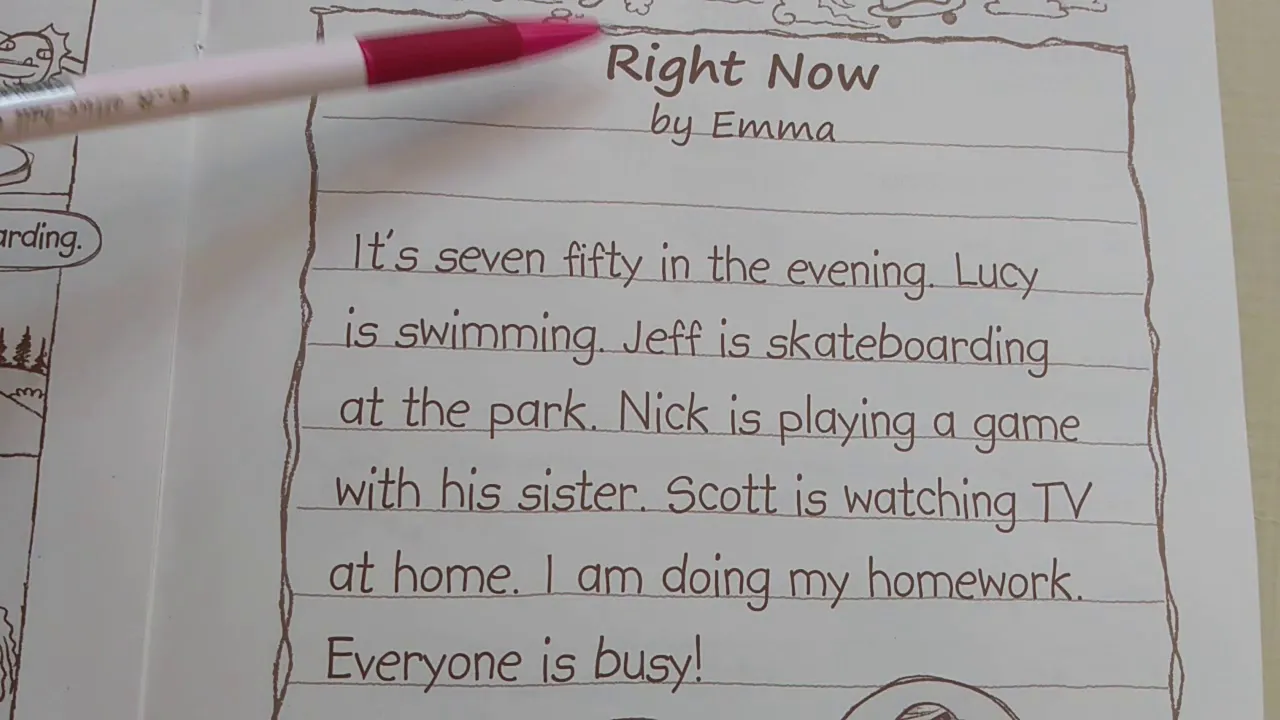 Right Now
by Emma
arding.
It's seven fifty in the evening. Lucy
is swimming. Jeff is skateboarding
at the park. Nick is playing a game
with his sister. Scott is watching TV
at home. I am doing my homework.
Everyone is busy!